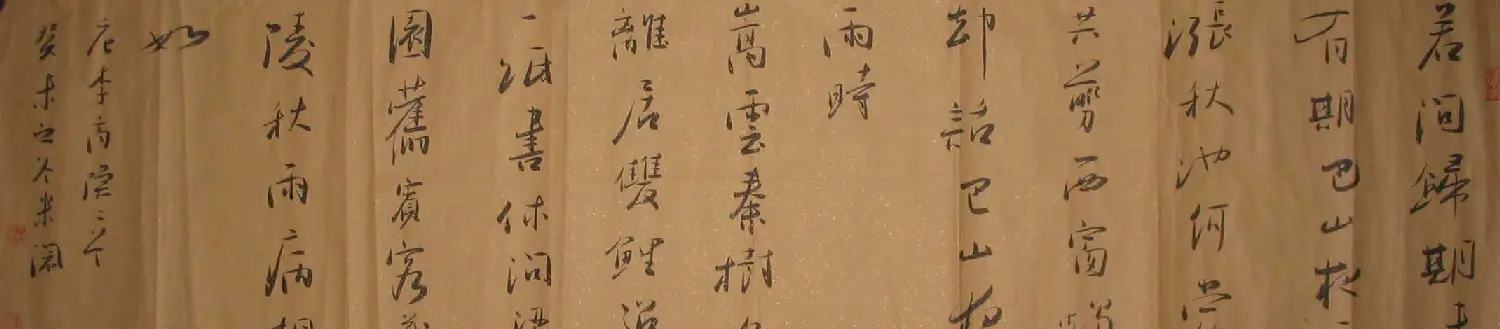 若問歸期
有期巴山
漲秋池何
共剪西窗
却話巴山夜
雨時
嵩雲秦樹
離居雙鯉
一紙書休問
園舊賓客
陵秋雨病相
如
唐李商隱
癸未之冬